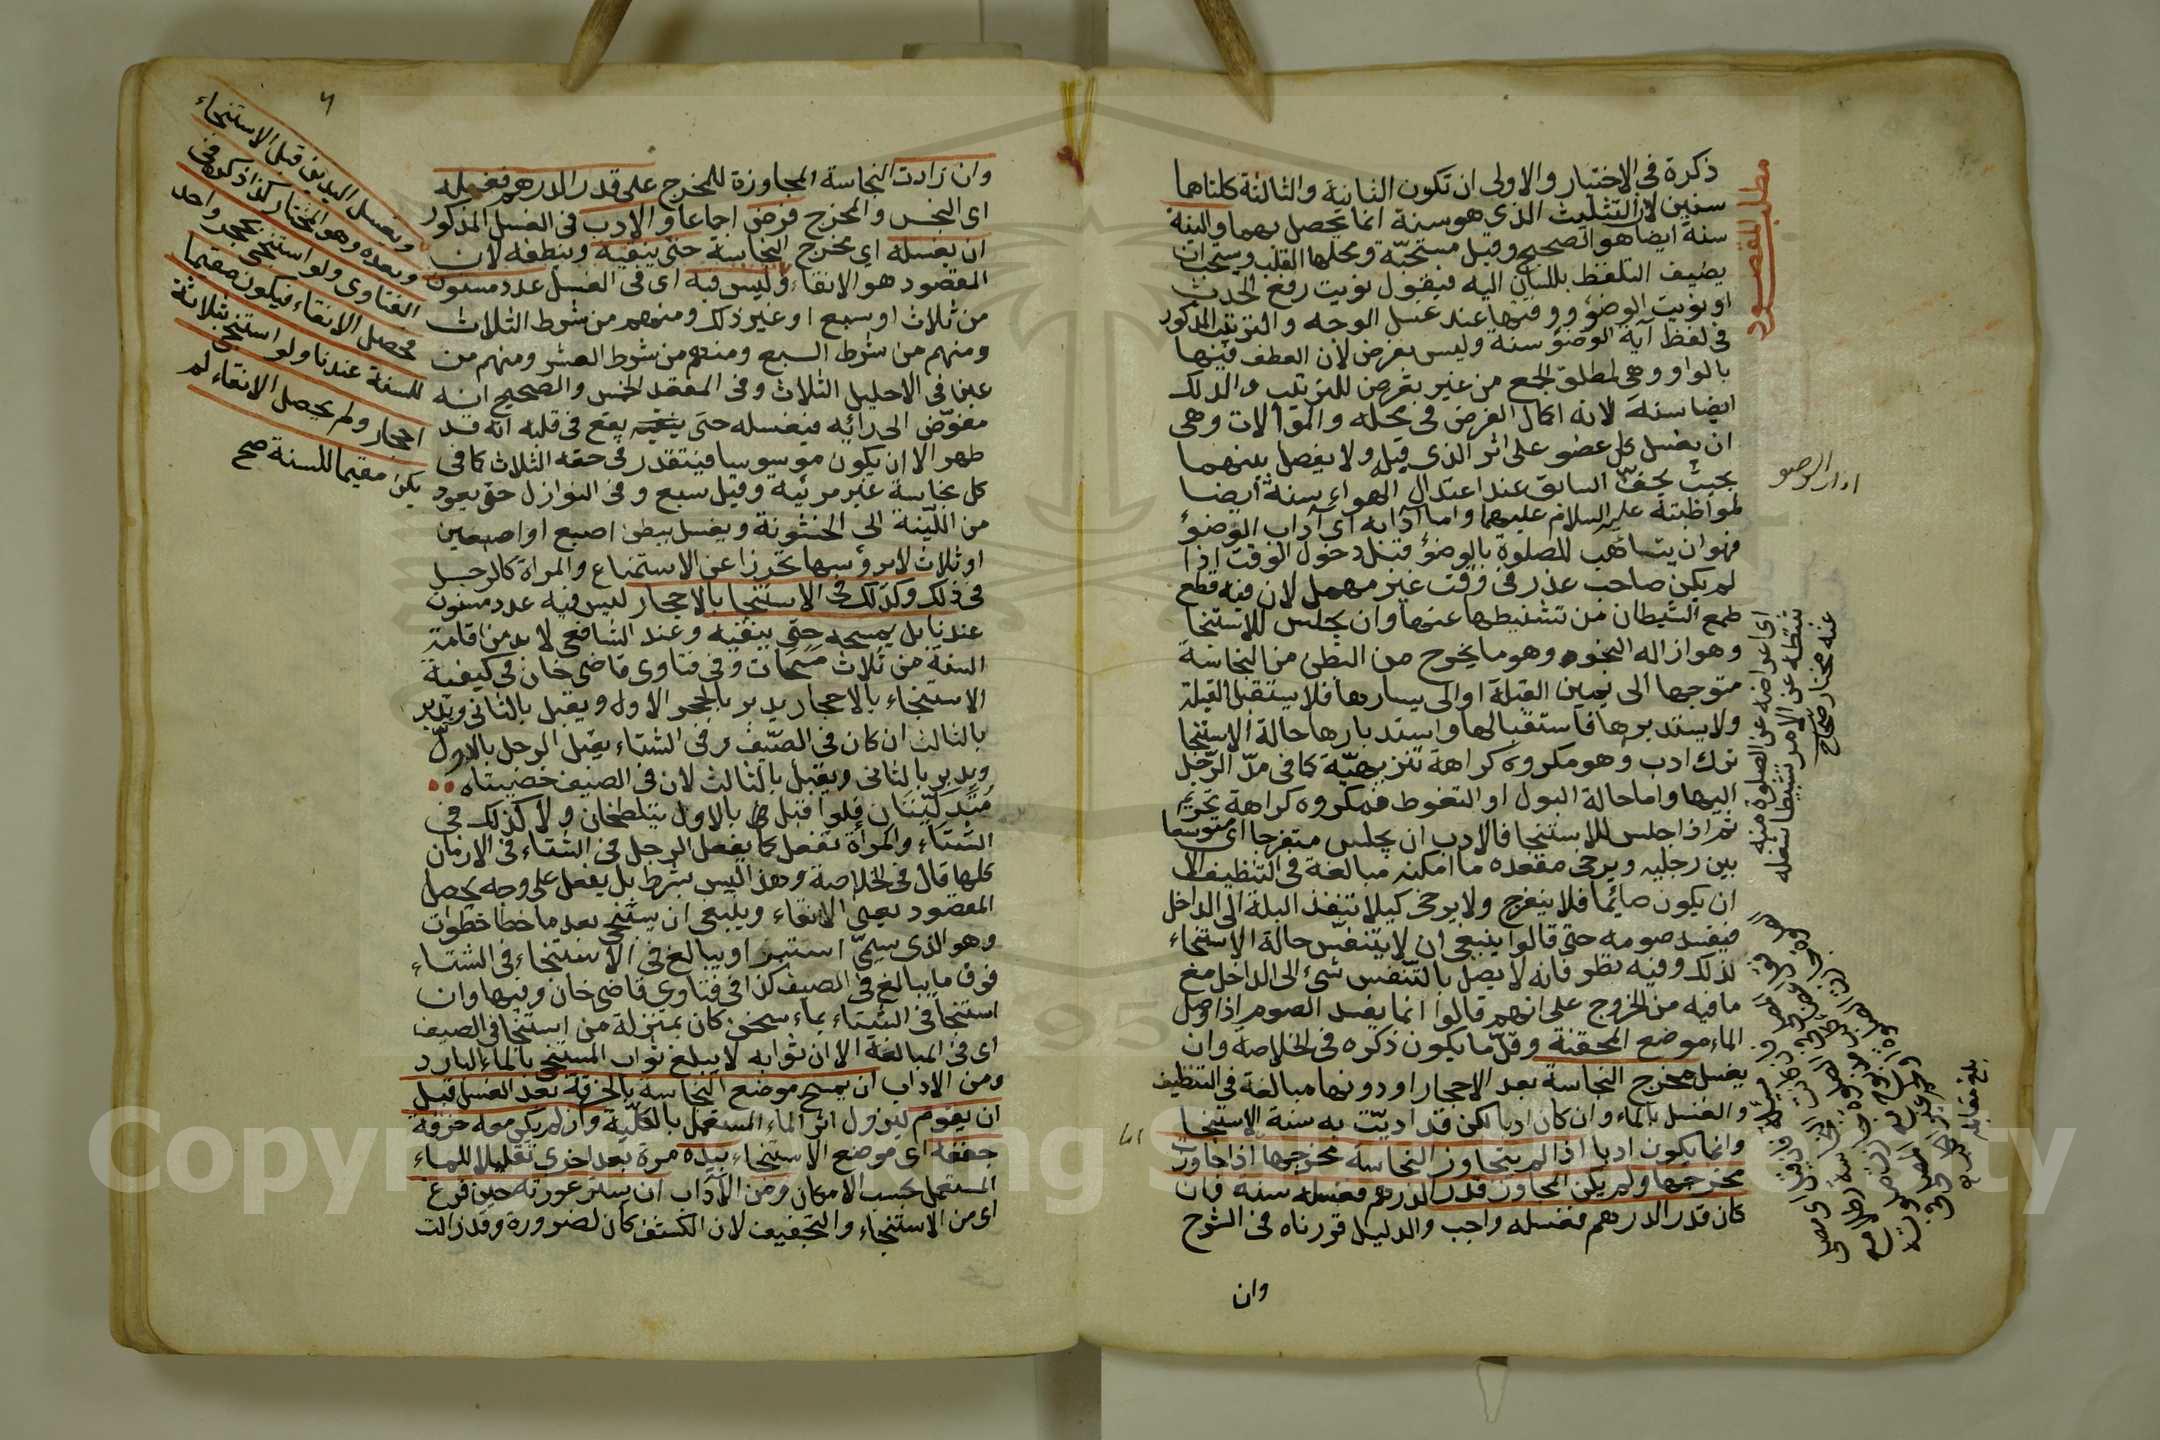 ذكره في الاختيار والاولى ان تكون الثانية والثالثة كلتاهما
سنين لان التثليث الذي هو سنة انما يحصل بهما والنية
سنة ايضا هو الصحيح وقيل مستحبّة ومحلها القلب ويستحب ان
يضيف التلفظ باللسان اليه فيقول نويت رفع الحدث
او نويت الوضؤ ووقتها عند غسل الوجه والترتيب المذكور
في لفظ آية الوضؤ سنة وليس بفرض لان العطف فيها
بالواو وهي لمطلق الجمع من غير بفرض للترتيب والدلك
ايضا سنة لانه اكمال الفرض في محله والموالات وهي
ان يغسل كل عضو على اثر الذي قبله ولا يفصل بينهما
بحيث يجفّ السابق عند اعتدال الهواء سنة ايضا
لمواظبته عليه السلام عليهما واما آدابه اى آداب الوضوٴ
فهو ان يتأهب للصلوة بالوضوٴ قبل دخول الوقت اذا
لم يكن صاحب عذر في وقت غير مهمل لان فيه قطع
طمع الشيطان من تشبيطها عنها وان يجلس للاستنجا
وهو ازالة النجو وهو ما يخرج من البطن من النجاسة
متوجها الى يمين القبلة او الى يسارها فلا يستقبل القبلة
ولا يستدبرها فاستقبالها واستدبارها حالة الاستنجا
ترك ادب وهو مكروه كراهة تنزيهيّة كما في مدّ الرّجل
اليها واما حالة البول او التغوط فمكروه كراهة تحريم
ثم اذا جلس للاستنجا فالادب ان يجلس متفرجا اى متوسعا
بين رجليه ويرخى مقعده ما امكنه مبالغة في التنظيف الا
ان يكون صائما فلا يتفرج ولا يرخى كيلا تنفذ البلة الى الداخل
فيفسد صومه حتى قالوا ينبغي ان لا يتنفّس حالة الاستنجاء
لذلك وفيه نظر فانه لا يصل بالتنفس شئ الى الداخل مع
ما فيه من الخروج على انهم قالوا انما يفسد الصوم اذا وصل
الماء موضع المحقنة وقلّ ما يكون ذكره في الخلاصة وان
يغسل مخرج النجاسة بعد الاحجار او دونها مبالغة في التنظيف
والغسل بالماء وان كان ادبا لكن قد اديّت به سنة الاستنجا
وانما يكون ادبا اذا لم يتجاوز النجاسة مخرجها اذا جاوزت
مخرجها ولم يكن المجاوز قدر الدرهم فغسله سنة فان
كان قدر الدرهم فغسله واجب والدليل قررناه في الشرح
وان
مطلب المقصود
اداب الوضو
اى اعراضه عن الصلوة منه
ثبطه عن الامر تثبيطا شغله
عنه مختار صحاح
وان زادت النجاسة المجاوزة للمخرج على قدر الدرهم فغسله
اى النجس والمخرج فرض اجماعا والادب في الغسل المذكور
ان يغسله اى مخرج النجاسة حتى ينقيه وينظفه لان
المقصود هو الانقاء وليس فيه اى في الغسل عدد مسنون
من ثلاث او سبع او غير ذلك ومنهم من شرط الثلاث
ومنهم من شرط السبع ومنهم من شرط العشر ومنهم من
عين في الاحليل الثلاث وفي المقعد الخمس والصحيح انه
مفوّض الى رائه فيغسله حتى يقع في قلبه انه قد
طهر الا ان يكون موسوسا فيتقدر في حقه الثلاث كما في
كل نجاسة غير مرئية وقيل سبع وفي النوازل حتى يعود
من اللّينة الى الخشونة ويغسل ببطن اصبع او اصبعين
او ثلاث لا برؤسها تحرزا عن الاستمتاع والمراة كالرجل
في ذلك وكذلك في الاستنجا بالاحجار ليس فيه عدد مسنون
عندنا بل يمسحه حتى ينقيه وعند الشافعي لا بد من اقامة
السنة من ثلاث مسحات وفي فتاوى قاضى خان في كيفية
الاستنجاء بالاحجار يدبر بالحجر الاول ويقبل بالثانى ويدبر
بالثالث ان كان في الصّيف وفي الشتاء يقبل الرجل بالاولّ
ويدبر بالثانى ويقبل بالثالث لان في الصيف خصيتاه
مُتدليّتان فلوا قبل بالاول يتلطخان ولا كذلك في
الشتاء والمرأة تفعل كما يفعل الرجل في الشتاء في الازمان
كلها قال في الخلاصة وهذا ليس بشرط بل يفعل على وجه يحصل
المقصود يعنى الانقاء وينبغى ان يستنجى بعد ما خطا خطوات
وهو الذى سيمّى استبراء ويبالغ في الاستنجاء في الشتاء
فوق ما يبالغ في الصيف كذا في فتاوى قاضى خان وفيها وان
استنجا في الشتاء بماء سخن كان بمنزلة من استنجا في الصيف
اى في المبالغة الا ان ثوابه لا يبلغ ثواب المستنجى بالماء البارد
ومن الاداب ان يمسح موضع النجاسة بالخرقة بعد الغسل قبل
ان يقوم ليزول اثر الماء المستعمل بالكلّية وان لم يكن معه خرقة
جففه اى موضع الاستنجاء بيده مرة بعد اخرى تقليلا للماء
المستعمل بحسب الامكان ومن الآداب ان يستر عورته حين فرغ
اى من الاستنجاء والتجفيف لان الكشف كان لضرورة وقد زالت
ويغسل اليدين قبل الاستنجاء
وبعده وهو المختار كذا ذكره في
الفتاوى ولو استنجى بحجر واحد
يحصل الانقاء فيكون مقيما
للسنة عندنا ولو استنجى بثلاثة
احجار ولم يحصل الانقاء لم
يكن مقيما للسنة صح
Copyr ng S ety